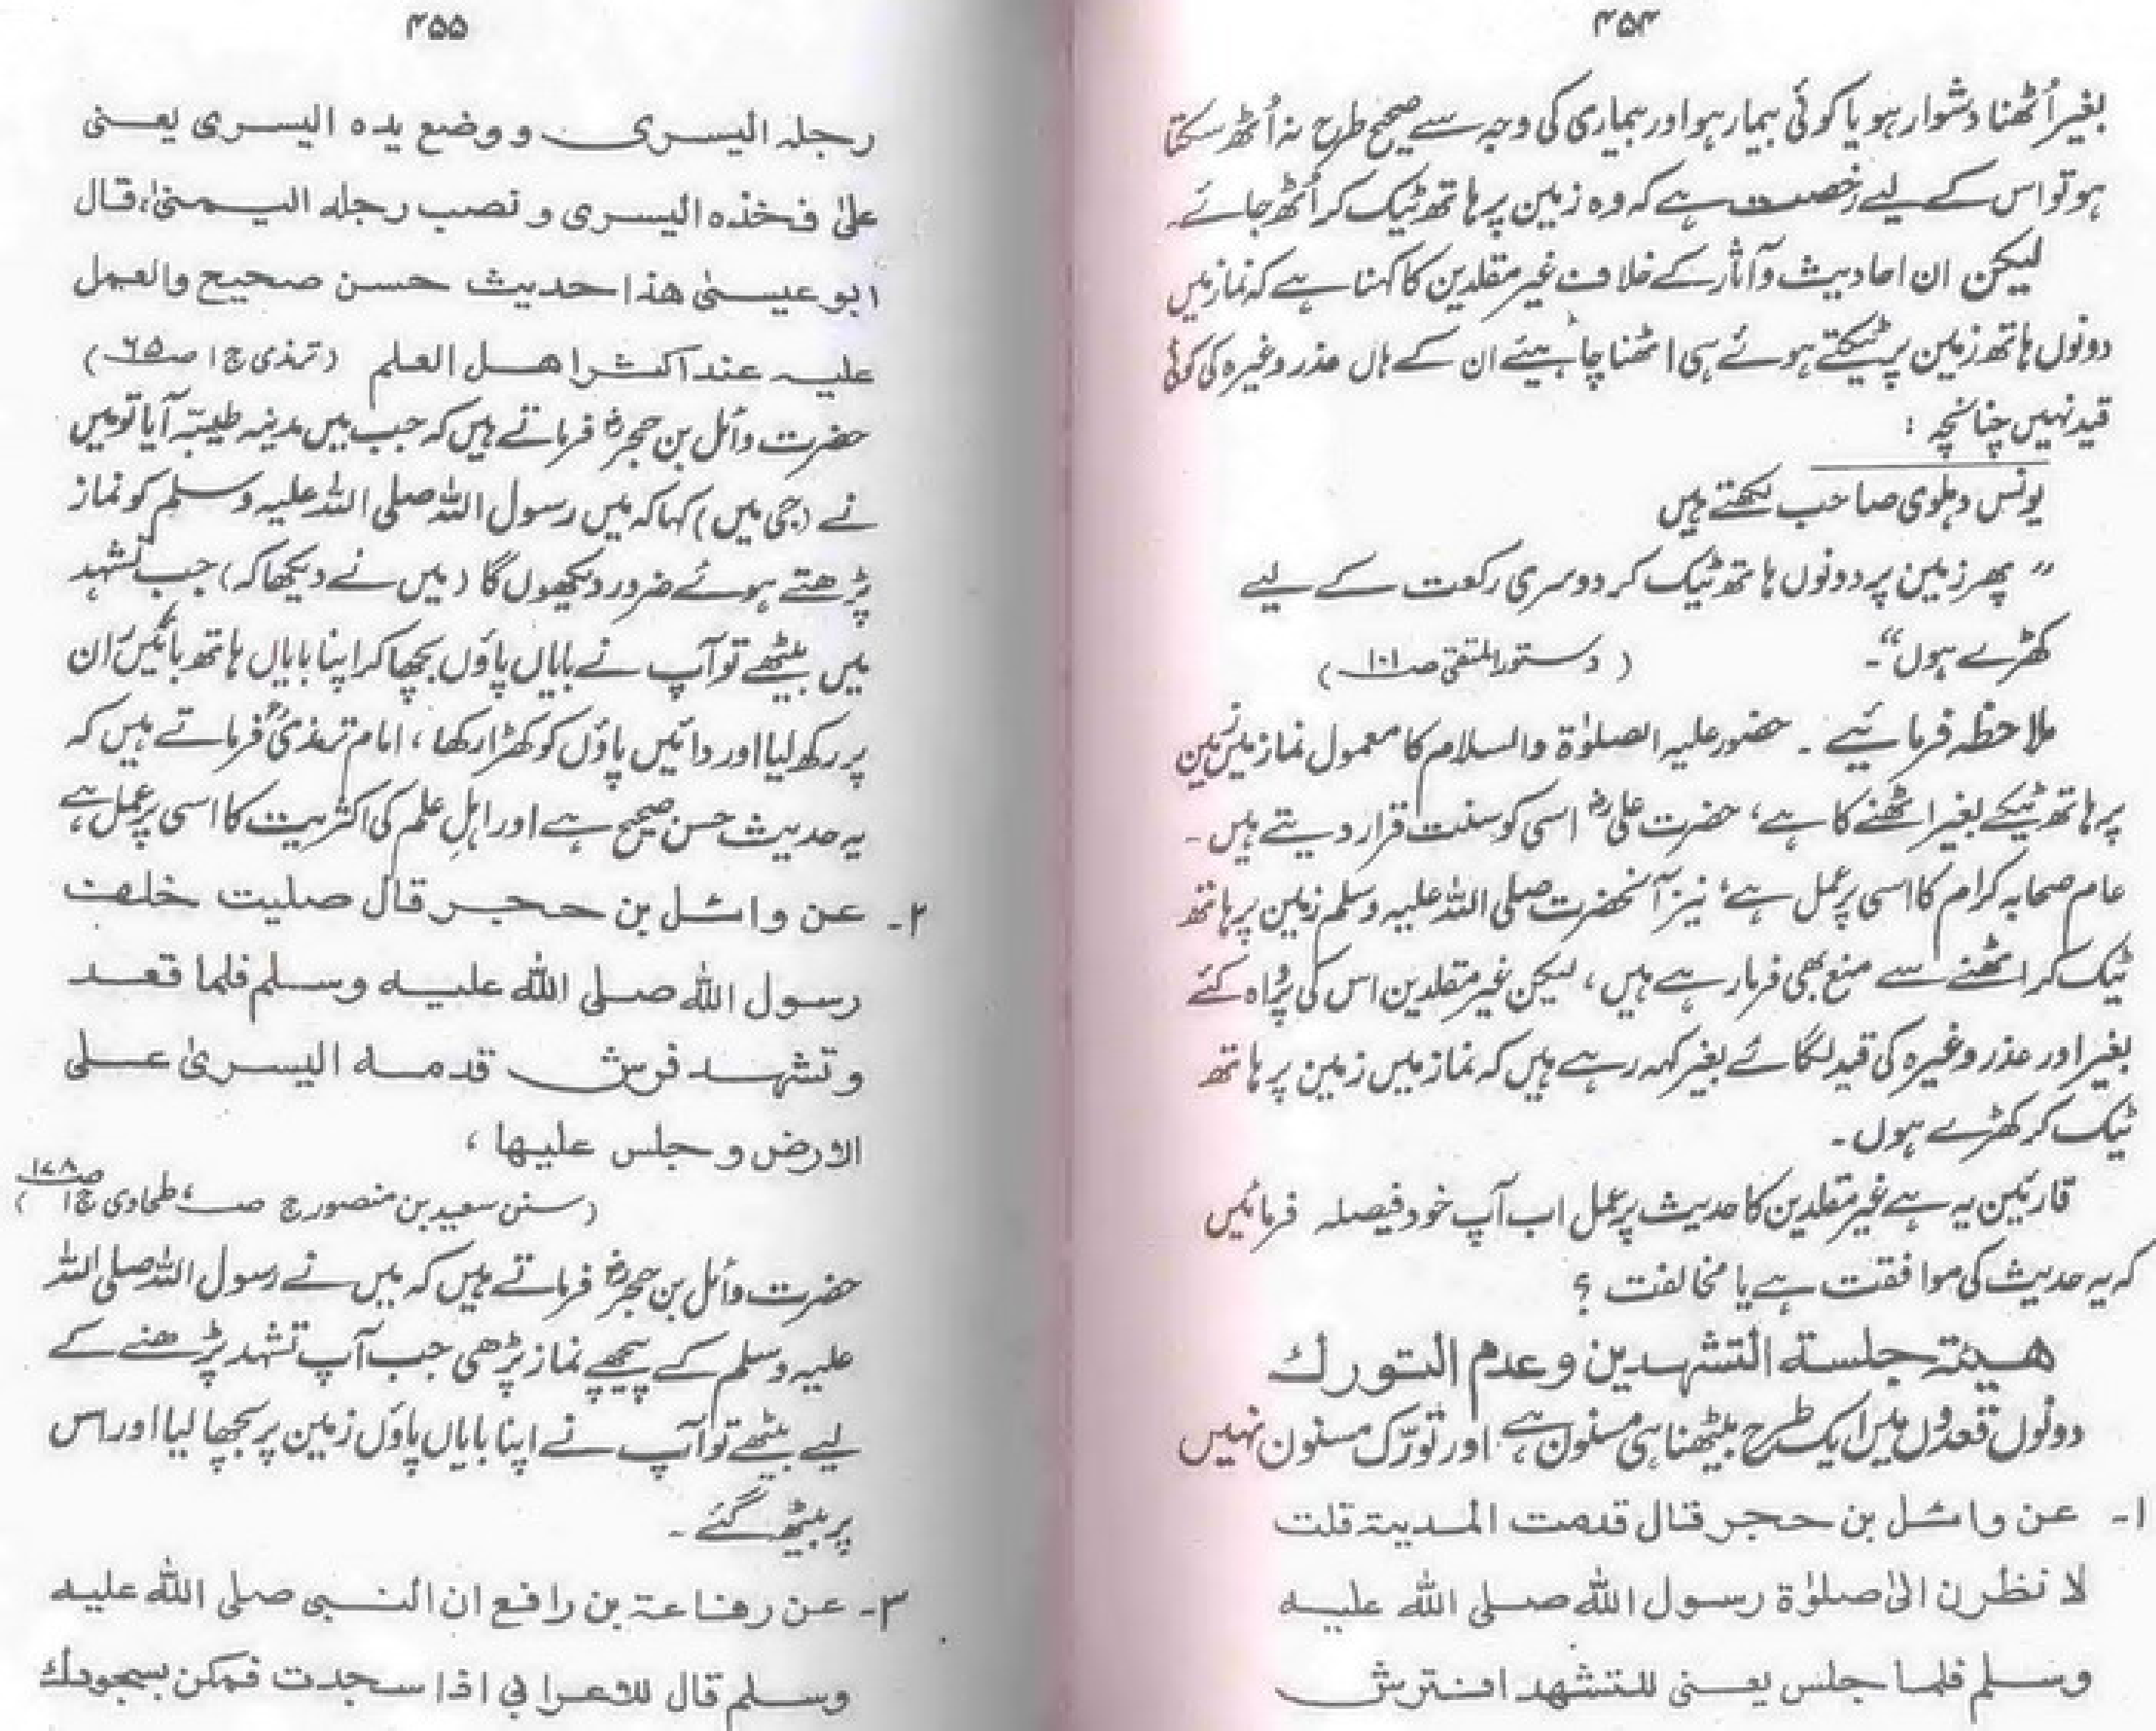 ۴۵۴
بغیر اُٹھنا دشوار ہو یا کوئی بیمار ہو اور بیماری کی وجہ سے صحیح طرح نہ اُٹھ سکتا
ہو تو اس کے لیے رُخصت ہے کہ وہ زمین پر ہاتھ ٹیک کر اُٹھ جائے۔
لیکن ان احادیث و آثار کے خلاف غیر مقلدین کا کہنا ہے کہ نماز میں
دونوں ہاتھ زمین پر ٹیکتے ہوئے ہی اٹھنا چاہیئے ان کے ہاں عذر وغیرہ کی کوئی
قید نہیں چنانچہ :
یونس دہلوی صاحب لکھتے ہیں
" پھر زمین پر دونوں ہاتھ ٹیک کر دوسری رکعت کے لیے
کھڑے ہوں"۔ (دستور المتقی صـ۱۰۱)
ملاحظہ فرمائیے ۔ حضور علیہ الصلوٰۃ والسلام کا معمول نماز میں زمین
پر ہاتھ ٹیکے بغیر اٹھنے کا ہے، حضرت علیؓ اسی کو سنت قرار دیتے ہیں۔
عام صحابہ کرام کا اسی پر عمل ہے، نیز آنحضرت صلی اللہ علیہ وسلم زمین پر ہاتھ
ٹیک کر اٹھنے سے منع بھی فرما رہے ہیں، لیکن غیر مقلدین اس کی پرُاہ کئے
بغیر اور عذر وغیرہ کی قید لگائے بغیر کہہ رہے ہیں کہ نماز میں زمین پر ہاتھ
ٹیک کر کھڑے ہوں۔
قارئین یہ ہے غیر مقلدین کا حدیث پر عمل اب آپ خود فیصلہ فرمائیں
کہ یہ حدیث کی موافقت ہے یا مخالفت ؟
هيئة جلسة التشهدين وعدم التورك
دونوں قعدوں میں ایک طرح بیٹھنا ہی مسنون ہے اور تورّک مسنون نہیں
۱۔ عن وائل بن حجر قال قدمت المدينة قلت
لانظرن الىٰ صلوٰة رسول الله صلى الله عليه
وسلم فلما جلس يعنى للتشهد افترش
۴۵۵
رجله اليسرى ووضع يده اليسرى يعنى
علىٰ فخذه اليسرى ونصب رجله اليمنىٰ، قال
ابو عيسىٰ هذا حديث حسن صحيح والعمل
عليه عند اكثر اهل العلم (ترمذی ج ۱ صـ۶۵)
حضرت وائل بن حجرؓ فرماتے ہیں کہ جب میں مدینہ طیبّہ آیا تو میں
نے (جی میں) کہا کہ میں رسول اللہ صلی اللہ علیہ وسلم کو نماز
پڑھتے ہوئے ضرور دیکھوں گا (میں نے دیکھا کہ) جب تشہد
میں بیٹھے تو آپ نے بایاں پاؤں بچھا کر اپنا بایاں ہاتھ بائیں ران
پر رکھ لیا اور دائیں پاؤں کو کھڑا رکھا، امام ترمذیؒ فرماتے ہیں کہ
یہ حدیث حسن صحیح ہے اور اہلِ علم کی اکثریت کا اسی پر عمل ہے
۲۔ عن وائل بن حجر قال صليت خلف
رسول الله صلى الله عليه وسلم فلما قعد
وتشهد فرش قدمه اليسرىٰ على
الارض وجلس عليها،
(سنن سعید بن منصور ج صـ، طحاوی ج۱ صـ۱۷۸)
حضرت وائل بن حجرؓ فرماتے ہیں کہ میں نے رسول اللہ صلی اللہ
علیہ وسلم کے پیچھے نماز پڑھی جب آپ تشہد پڑھنے کے
لیے بیٹھے تو آپ نے اپنا بایاں پاؤں زمین پر بچھا لیا اور اس
پر بیٹھ گئے ۔
۳۔ عن رفاعة بن رافع ان النبى صلى الله عليه
وسلم قال للاعرابي اذا سجدت فمكن بسجودك